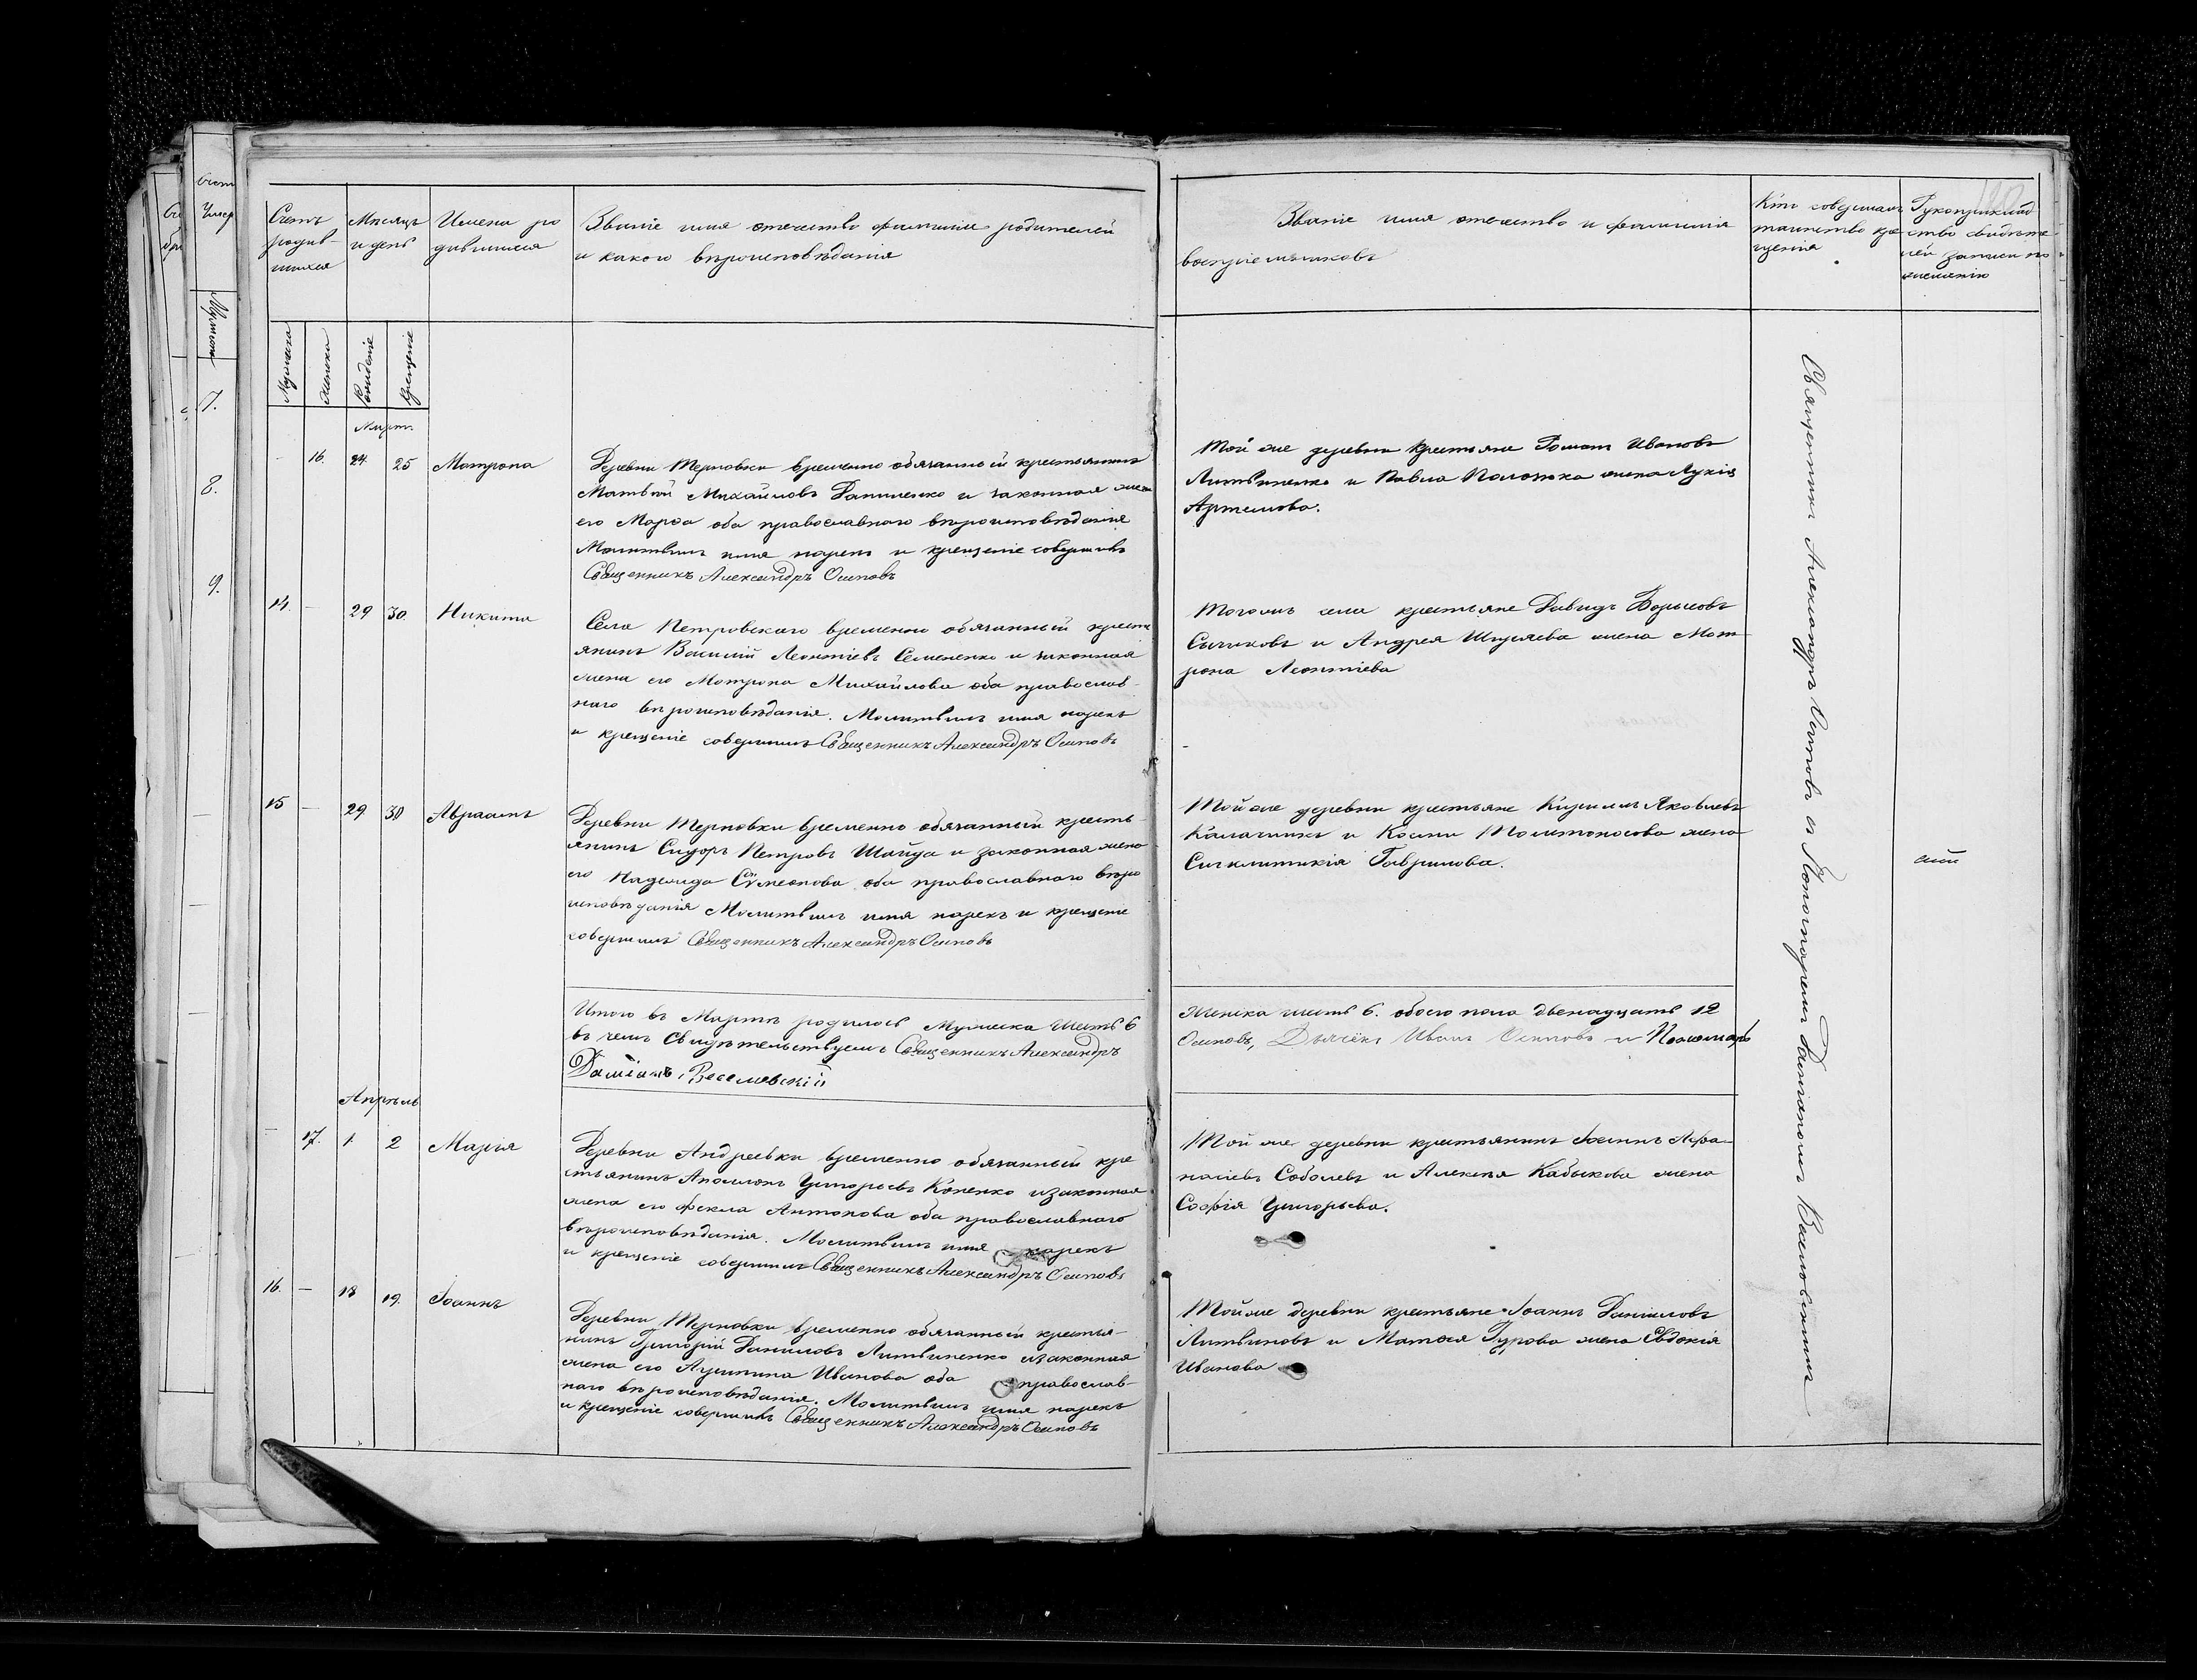 Счетъ родив-
шихся
Мѣсяцъ
и день
Имена ро
дившихся
Званіе имя отечество фамилія родителей
и какого вѣроисповѣданія
Званіе имя отечество и фамилія
воспріемниковъ
Кто совершалъ
таинство кре
щенія
Рукоприклад
ство свидѣте
лей записи по
желанію
Мужеска
Женска
Рожденіе
Крещеніе
Мартъ
- 16. 24. 25 Матрона
Деревни Терновки временно обязанной крестьянинъ
Матвѣй Михайловъ Даниленко и законная жена
его Марѳа оба православнаго вѣроисповѣданія
Молитвилъ имя нарекъ и крещеніе совершилъ
Священникъ Александръ Осиповъ
Той же деревни крестьяне Романъ Ивановъ
Литвиненко и Павла жена Лукія
Артемова.
14. - 29 30. Никита
Села Петровскаго временно обязанный кресть
янинъ Василій Леонтіевъ Семененко и законная
жена его Матрона Михайлова оба православ-
наго вѣроисповѣданія. Молитвилъ имя нарекъ
и крещеніе совершилъ Священникъ Александръ Осиповъ
Тогожъ села крестьяне Давидъ Борисовъ
и Андрея жена Мат-
рона Леонтіева
15 - 29 30 Авраамъ
Деревни Терновки временно обязанный кресть-
янинъ Сидоръ Петровъ Шайда и законная жена
его Надежда Симеонова оба православнаго вѣро
исповѣданія Молитвилъ имя нарекъ и крещеніе
совершилъ Священникъ Александръ Осиповъ
Той же деревни крестьяне Кириллъ Яковлевъ
Калачникъ и Космы Толстоносова жена
Сигклитикія Гаврилова.
Итого въ Мартѣ родилось Мужеска Шесть 6
Женска шесть 6. обоего пола двенадцать 12
въ чемъ Свидѣтельствуемъ Священникъ Александръ
Осиповъ, Дьячекъ Иванъ Осиповъ и Пономарь
Даміанъ Веселовскій
Апрѣль
- 17. 1. 2 Марія
Деревни Андреевки временно обязанный кре
стьянинъ Аполлонъ Григорьевъ Коненко и законная
жена его Ѳекла Антонова оба православнаго
вѣроисповѣданія. Молитвилъ имя нарекъ
и крещеніе совершилъ Священникъ Александръ Осиповъ
Той же деревни крестьянинъ Іоаннъ Афа-
насіевъ Соболевъ и Алексѣя Кабыкова жена
Софія Григорьева.
16. - 18 19. Іоаннъ
Деревни Терновки временно обязанный крестья-
нинъ Григорій Даниловъ Литвиненко и законная
жена его Акулина Иванова оба православ-
наго вѣроисповѣданія. Молитвилъ имя нарекъ
и крещеніе совершилъ Священникъ Александръ Осиповъ
Той же деревни крестьяне Іоаннъ Даниловъ
Литвиновъ и Матѳея Гурова жена Евдокія
Иванова
Священникъ Александръ Осиповъ съ Пономаремъ Даміаномъ Веселовскимъ
7.
8.
9.